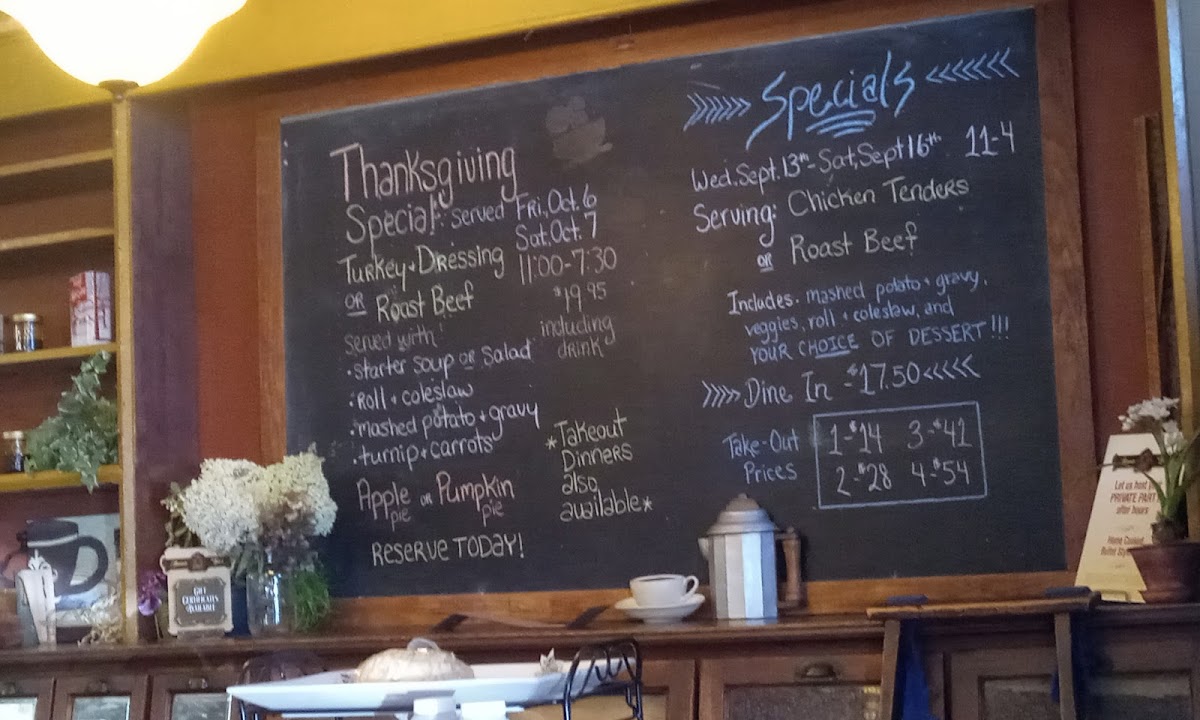 Thanksgiving
Special: Served Fri, Oct. 6
Sat. Oct. 7
Turkey + Dressing 11:00-7:30
OR Roast Beef $19.95
including
drink
served with:
• starter soup or salad
• Roll + coleslaw
• mashed potato + gravy
• turnip + carrots
Apple or Pumpkin
pie pie
RESERVE TODAY!
*Takeout
Dinners
also
available*
>>>>> Specials <<<<<<
Wed. Sept. 13th - Sat, Sept 16th 11-4
Serving: Chicken Tenders
OR Roast Beef
Includes. mashed potato + gravy,
veggies, roll + coleslaw, and
YOUR CHOICE OF DESSERT!!!
>>>> Dine In - $17.50 <<<<<
Take-Out
Prices
1-$14 3-$41
2-$28 4-$54
GIFT
CERTIFICATES
AVAILABLE
Let us host
PRIVATE PART
after hours
Home Cooked